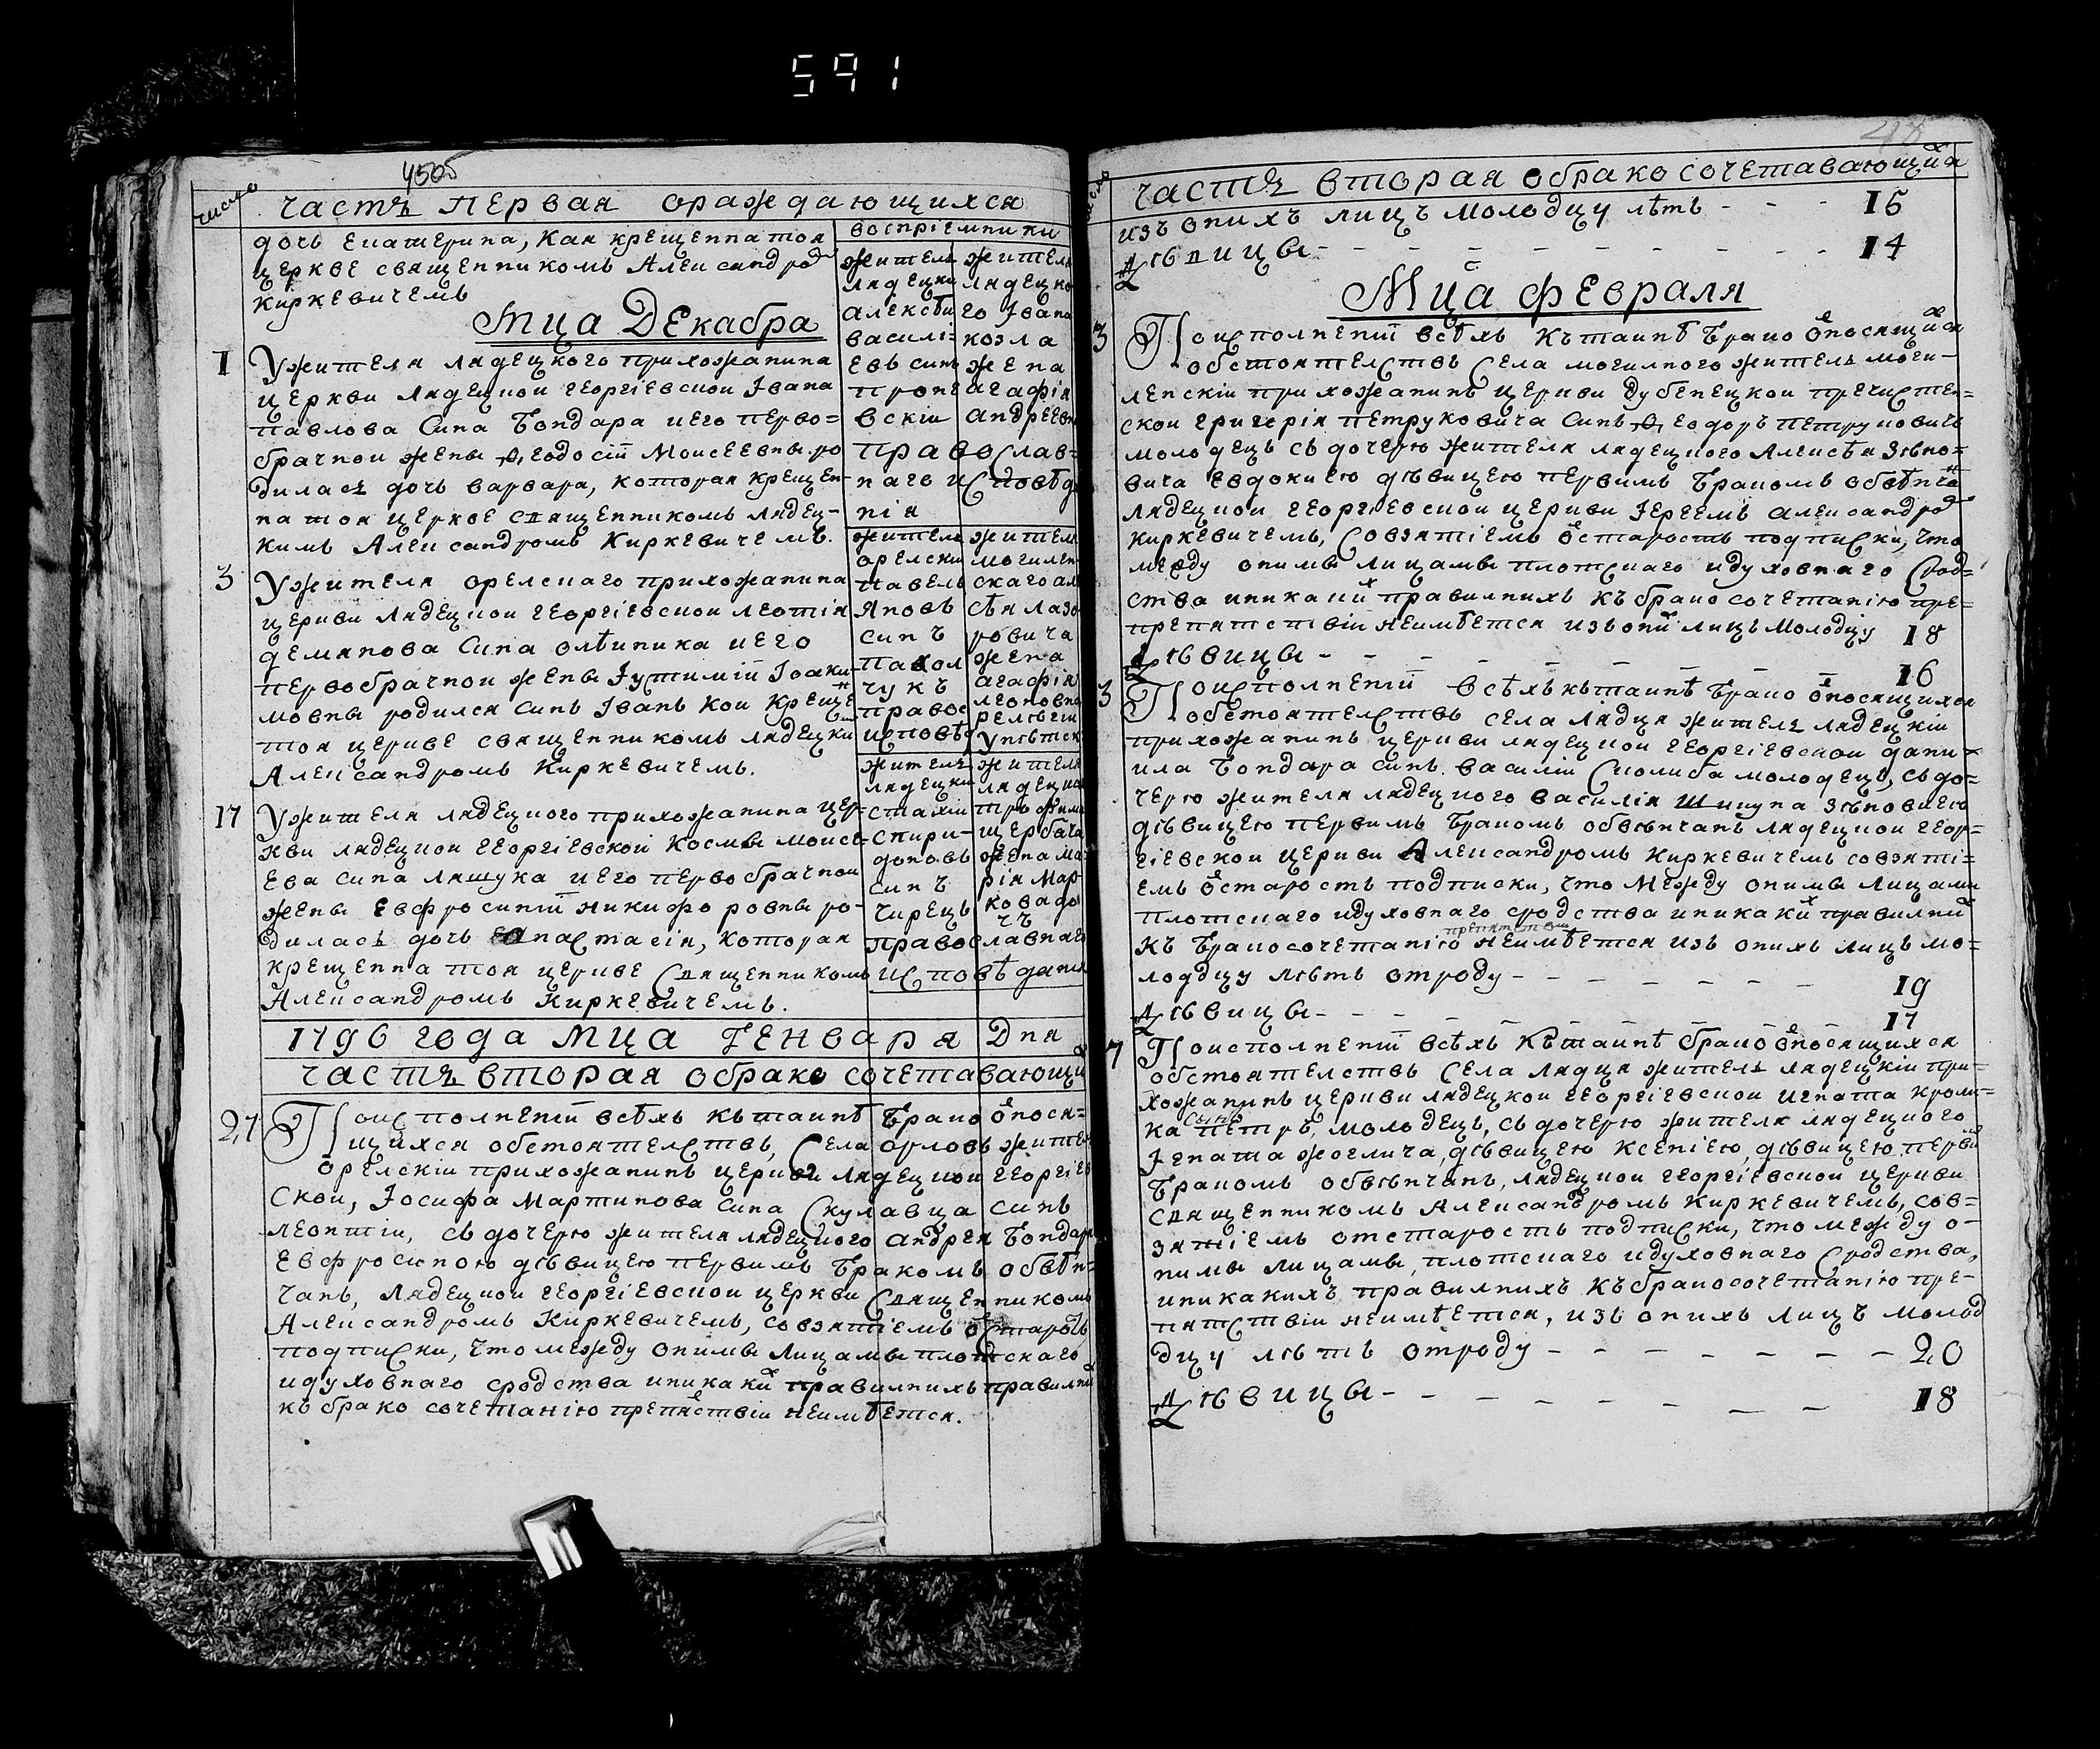 591
450б
число
часть первая ораждающихся
дочь Екатерина, Кая крещенна тоя
церкве священникомъ Александро
Киркевичемъ
Мца Декабра
1 Ужителя лядецкого прихожанина
церкви лядецкой георгіевской Івана
павлова Сина Бондара иего перво=
брачной жены Ѳеодосіи Моисеевны ро
дилась дочь варвара, которая крещен-
на тоя церкве священникомъ лядец-
кимъ Александромъ Киркевичемъ.
3 Ужителя орелского прихожанина
церкви лядецкой георгіевской леонтія
демянова Сина олѣиника иего
первобрачной жены Іустиміи Іоаки-
мовны родился синъ Іванъ кои креще
тоя церкве священникомъ лядецки
Александромъ Киркевичемъ.
17 Ужителя лядецкого прихожанина цер-
кви лядецкой георгіевской Космы моисе-
ева сина ляшука иего первобрачной
жены Евфросиніи никифоровны ро-
дилась дочь анастасія, которая
крещенна тоя церкве Священникомъ
Александромъ Киркевичемъ.
воспріемники
житель жителя
лядецки лядецко
алексѣи го Івана
василі= козла
евъ синъ жена
проне агафія
вскіи андреевна
православ=
наго исповѣда
нія
житель жителя
орелски могилен
павелъ скаго але
яновъ ѣя лазо
синъ ровича
пахол жена
чукъ агафія
правос леоновна
исповѣд
житель жителя
лядецки лядецко
стахіи трофима
спири- щербача
доновъ жена ма
синъ рія мар
чирець кова до
чъ
православнаго
исповѣданія
1796 года мца Генваря Дня
часть вторая обрако сочетавающи
27 Поисполненіи всѣхъ къ таинѣ брано ѿнося=
щихся обстоятелствъ, Села орловъ жите
орелскіи прихожанинъ церкви лядецкой георгіев
ской, Іосифа Мартинова сина Скулавца синъ
леонтіи, съ дочерю жителя лядецкого андрея Бондара
Евфросиною дѣвицею первимъ бракомъ обвѣн-
чанъ, лядецкой георгіевской церкви Священникомъ
Александромъ Киркевичемъ, совзятіемъ ѿстаростъ
подписки, что между оними лицамы плотскаго
идуховнаго сродства иникаки правилнихъ правилни
къ брако сочетанію препяствіи неимѣется.
48
число
часть вторая обрако сочетавающийся
изъ онихъ лицъ молодцу лѣтъ - - - 15
Дѣвицы - - - - - - - - - 14
Мца февраля
3 Поисполненіи всѣхъ къ таинѣ брано ѿносящися
обстоятелствъ Села могилного житель моги-
ленскіи прихожанинъ церкви дубенецкой пречистен=
ской григорія петруковича Синъ Ѳеодоръ петруковичъ
молодецъ съ дочерю жителя лядецкого Алексѣя Зѣно=
вича Евдокиею дѣвицею первимъ браномъ обвѣнча
лядецкой георгіевской церкви Іереемъ александро
киркевичемъ, Совзятіемъ ѿстаростъ подписки, что
между оними лицамы плотскаго идуховнаго Срод=
ства иникаки правилнихъ къ брано сочетанію пре=
препятствіи неимѣется изъ они лицъ молодцу 18
Дѣвицы - - - - - - - - 16
3 Поисполненіи всѣхъ къ таинѣ брано ѿносящихся
обстоятелствъ села лядця житель лядецкіи
прихожанинъ церкви лядецкой георгіевской дани=
ила Бондара синъ василіи Сколиба молодецъ, съ до=
черю жителя лядецкого василія шикула зѣновиею
дѣвицею первимъ браномъ обвѣнчанъ лядецкой геор=
гіевской церкви Александромъ Киркевичемъ совзяти=
емъ ѿстаростъ подписки, что между оними лицами
плотскаго идуховнаго сродства иникаки правилни
препятствіи
къ браносочетанію неимѣется изъ онихъ лицъ мо=
лодцу лѣтъ отроду - - - - - - - 19
Дѣвицы - - - - - - - - - 17
7 Поисполненіи всѣхъ къ таинѣ брано ѿносящихся
обстоятелствъ Села лядця житель лядецкіи при=
хожанинъ церкви лядецкой георгіевской игната кроли=
сынъ
ка петръ, молодецъ, съ дочерю жителя лядецкого
Ігната жоглича, дѣвицею Ксеніею, дѣвицею перви
браномъ обвѣнчанъ, лядецкой георгіевской церкви
священникомъ Александромъ Киркевичемъ, сов=
зятіемъ отстаростъ подписки, что между о-
ними лицамы, плотскаго идуховнаго Сродства,
иникакихъ правилнихъ къ браносочетанію пре-
пятствіи неимѣется, изъ онихъ лицъ молод
дцу лѣтъ отроду - - - - - - - 20
Дѣвицы - - - - - - - - 18